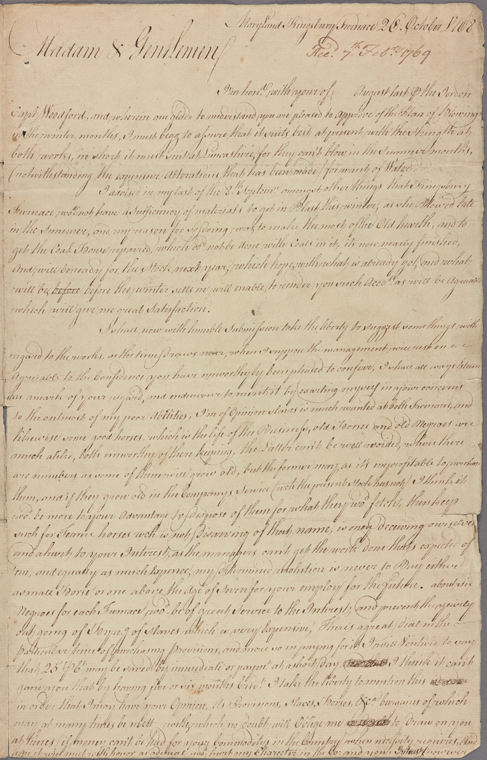 Maryland Kingsbury Furnace 26 October 1768
Madam & Gentlemen
Rec. 7th Feb. 1769
I am hon'd with yours of August last the
Capt. Woodford, and wherein am able to understand, you are pleased to Approve of the Plan of Blowing
in the winter months, I must beg to assure that it suits best at present with the Strength at
both works, in short it must suit at Lancashire, for they can't blow in the Summer months,
(notwithstanding the expensive Alterations that has been made) for want of Water.
I advised in my last of the amongst other things that Kingsbury
Furnace wou'd not have a sufficiency of materials to get in Blast this winter, as she Blow'd late
in the Summer, and my reason for so doing, was to make the most of the Old hearth, and to
get the Coal House repaired, which co'd not be done with Coals in it, its now nearly finished,
And will be ready for the Stock next year, which hope with what is already got, and what
will be before the winter sets in will enable, to render you such Acco's as will be agreeable
which will give me great Satisfaction.
I shall now with humble Submission take the liberty to suggest something with
regard to the works, as the time draws near, when I suppose the management will rest on me
Agreeable to the Confidence you have unworthily been pleased to confer, I shall always esteem
the mark of your regard, and endeavour to merit it by exerting myself in your concerns
to the outmost of my poor Abilities, I'm of Opinion Slaves is much wanted at both Furnaces, and
likewise some good horses, which is the life of the Business, old Horses and old Negroes are
much alike, both unworthy of their keeping, the Latter can't be well avoided, where there
are numbers as some of them will grow old, but the former may, as its unprofitable to purchase
them, and if they grow old in the Company's Service (with the present Stock has not) I think it
wo'd be more to your Advantage to dispose of them for what they wo'd fetch, than keep
such for Team horses wch is not Deserving of that name, is only deceiving ourselves
and a hurt to your Interest, as the managers can't get the work done that's expected of
'em, and equally as much expence, my determined resolution is never to Buy either
a small Horse or one above the Age of Seven for your employ for the future. about six
Negroes for each Furnace wo'd be of great Service to the Interest, and prevent the yearly
out going of Hyring of Slaves which is very Expensive, There's a great deal in the
particular time of purchasing Provisions, and more so in paying for it I will Venture to say
that 25 may be saved by immediate or payment at a short Day I think it can't
gain you that by having five or six months Credit. I take the liberty to mention this
in order that I may have your Opinion. As Provisions, Slaves, Horses, &ca bargains of which
may at many times be mett with, which no doubt, will Oblige me to Draw on you
at times, if money can't be had for your Commodities in the Country when necessity requires,